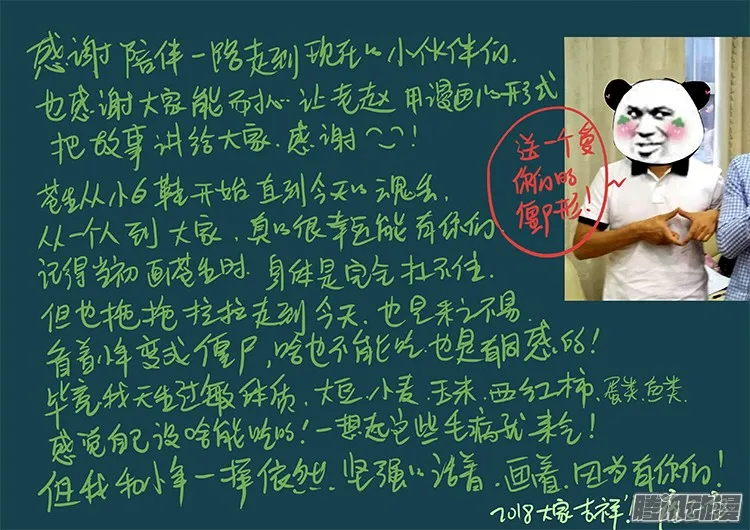 感谢陪伴一路走到现在的小伙伴们.
也感谢大家能耐心让老赵用漫画的形式
把故事讲给大家.感谢^_^!
苍生从小6鞋开始直到今天的魂丢,
从一个人到大家,真的很幸运能有你们
记得当初画苍生时.身体是完全扛不住.
但也拖拖拉拉走到今天.也是来之不易.
看着小年变成僵尸,啥也不能吃也是有同感的!
毕竟我天生过敏体质,大豆.小麦.玉米.西红柿.蛋类.鱼类.
感觉自己没啥能吃的!一想起这些毛病就来气!
但我和小年一样依然.坚强的活着.画着.因为有你们!
2018大家吉祥!
送一个爱
你们的
僵尸形!
腾讯动漫